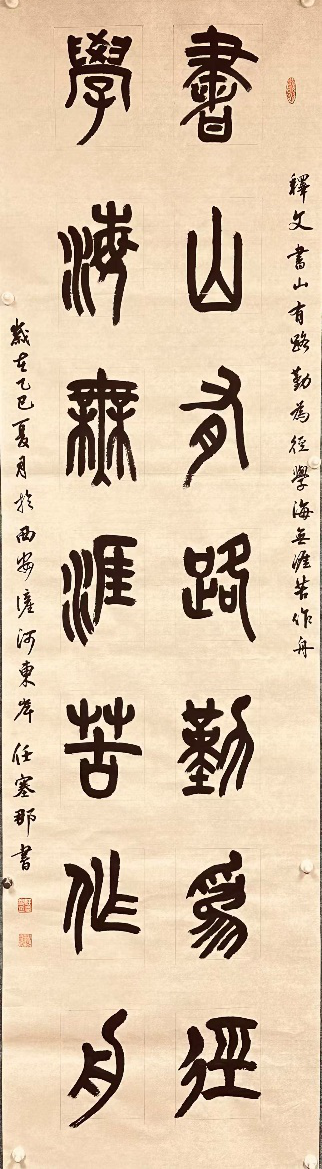 釋文書山有路勤為徑學海無涯苦作舟
書山有路勤爲徑
學海無涯苦作舟
歲在乙巳夏月於西安滻河東岸任塞那書